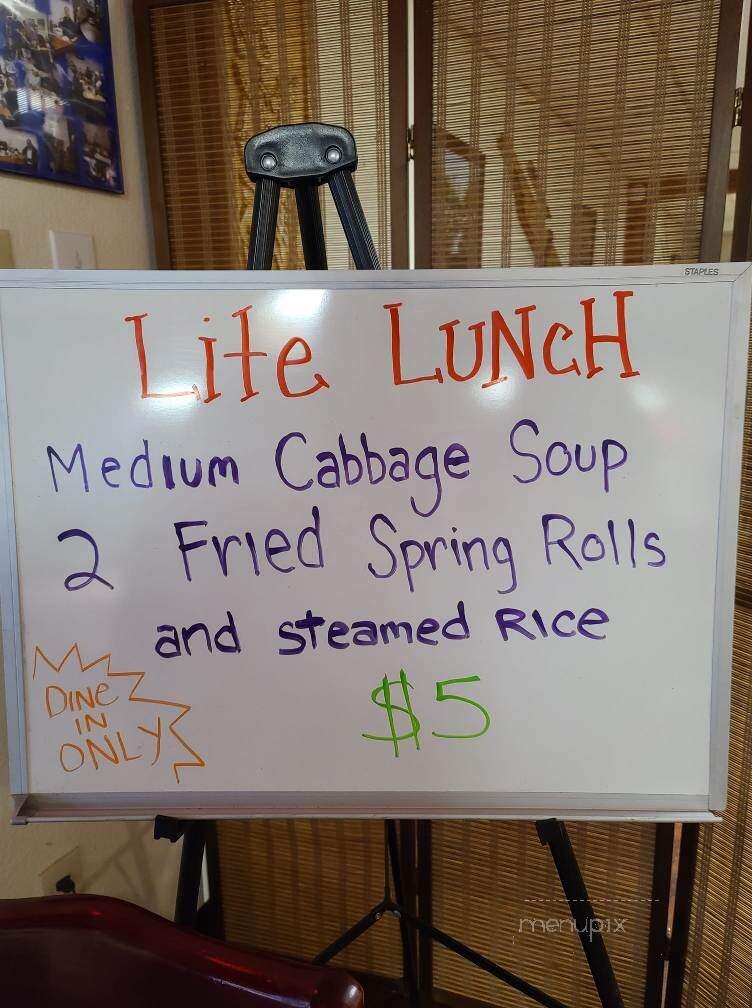 STAPLES
Lite LUNCH
Medium Cabbage Soup
2 Fried Spring Rolls
and steamed Rice
$5
DINE
IN
ONLY
menupix